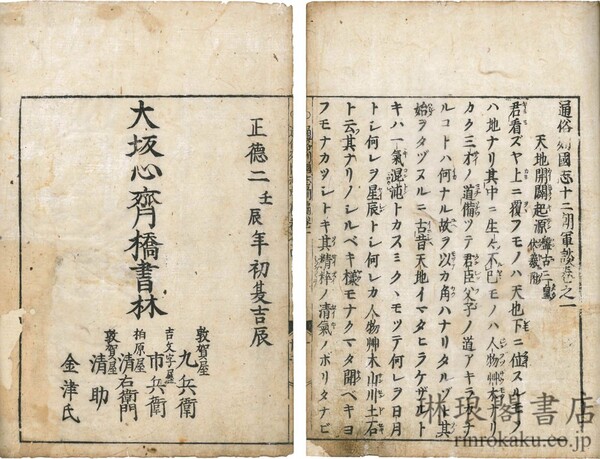 通俗列國志十二朝軍談卷之一
天地開闢起源 盤古三皇
伏羲
君看ズヤ上ニ覆フモノハ天也下ニ位スルモノ
ハ地ナリ其中ニ生々不已モノハ人物艸木ナリ
カク三才ノ道備ツテ君臣父子ノ道アキラカナ
ルコトハ何ナル故ヲ以カ角ハナリタルゾト其
始ヲタヅヌルニ古昔天地イマタヒラケザルト
キハ一氣混沌トカスミクヽモツテ何レヲ日月
トシ何レヲ星辰トシ何レカ人物艸木山川土石
ト云其ナリノシルベキ樣モナクマタ聞ベキヨ
フモナカツシトキ其精粹ノ清氣ノボリタナビ
正德二壬辰年初夏吉辰
大坂心齊橋書林
敦賀屋
九兵衛
吉文字屋
市兵衛
柏原屋
清右衛門
敦賀屋
清助
金津氏
琳琅閣書店
rinrokaku.co.jp